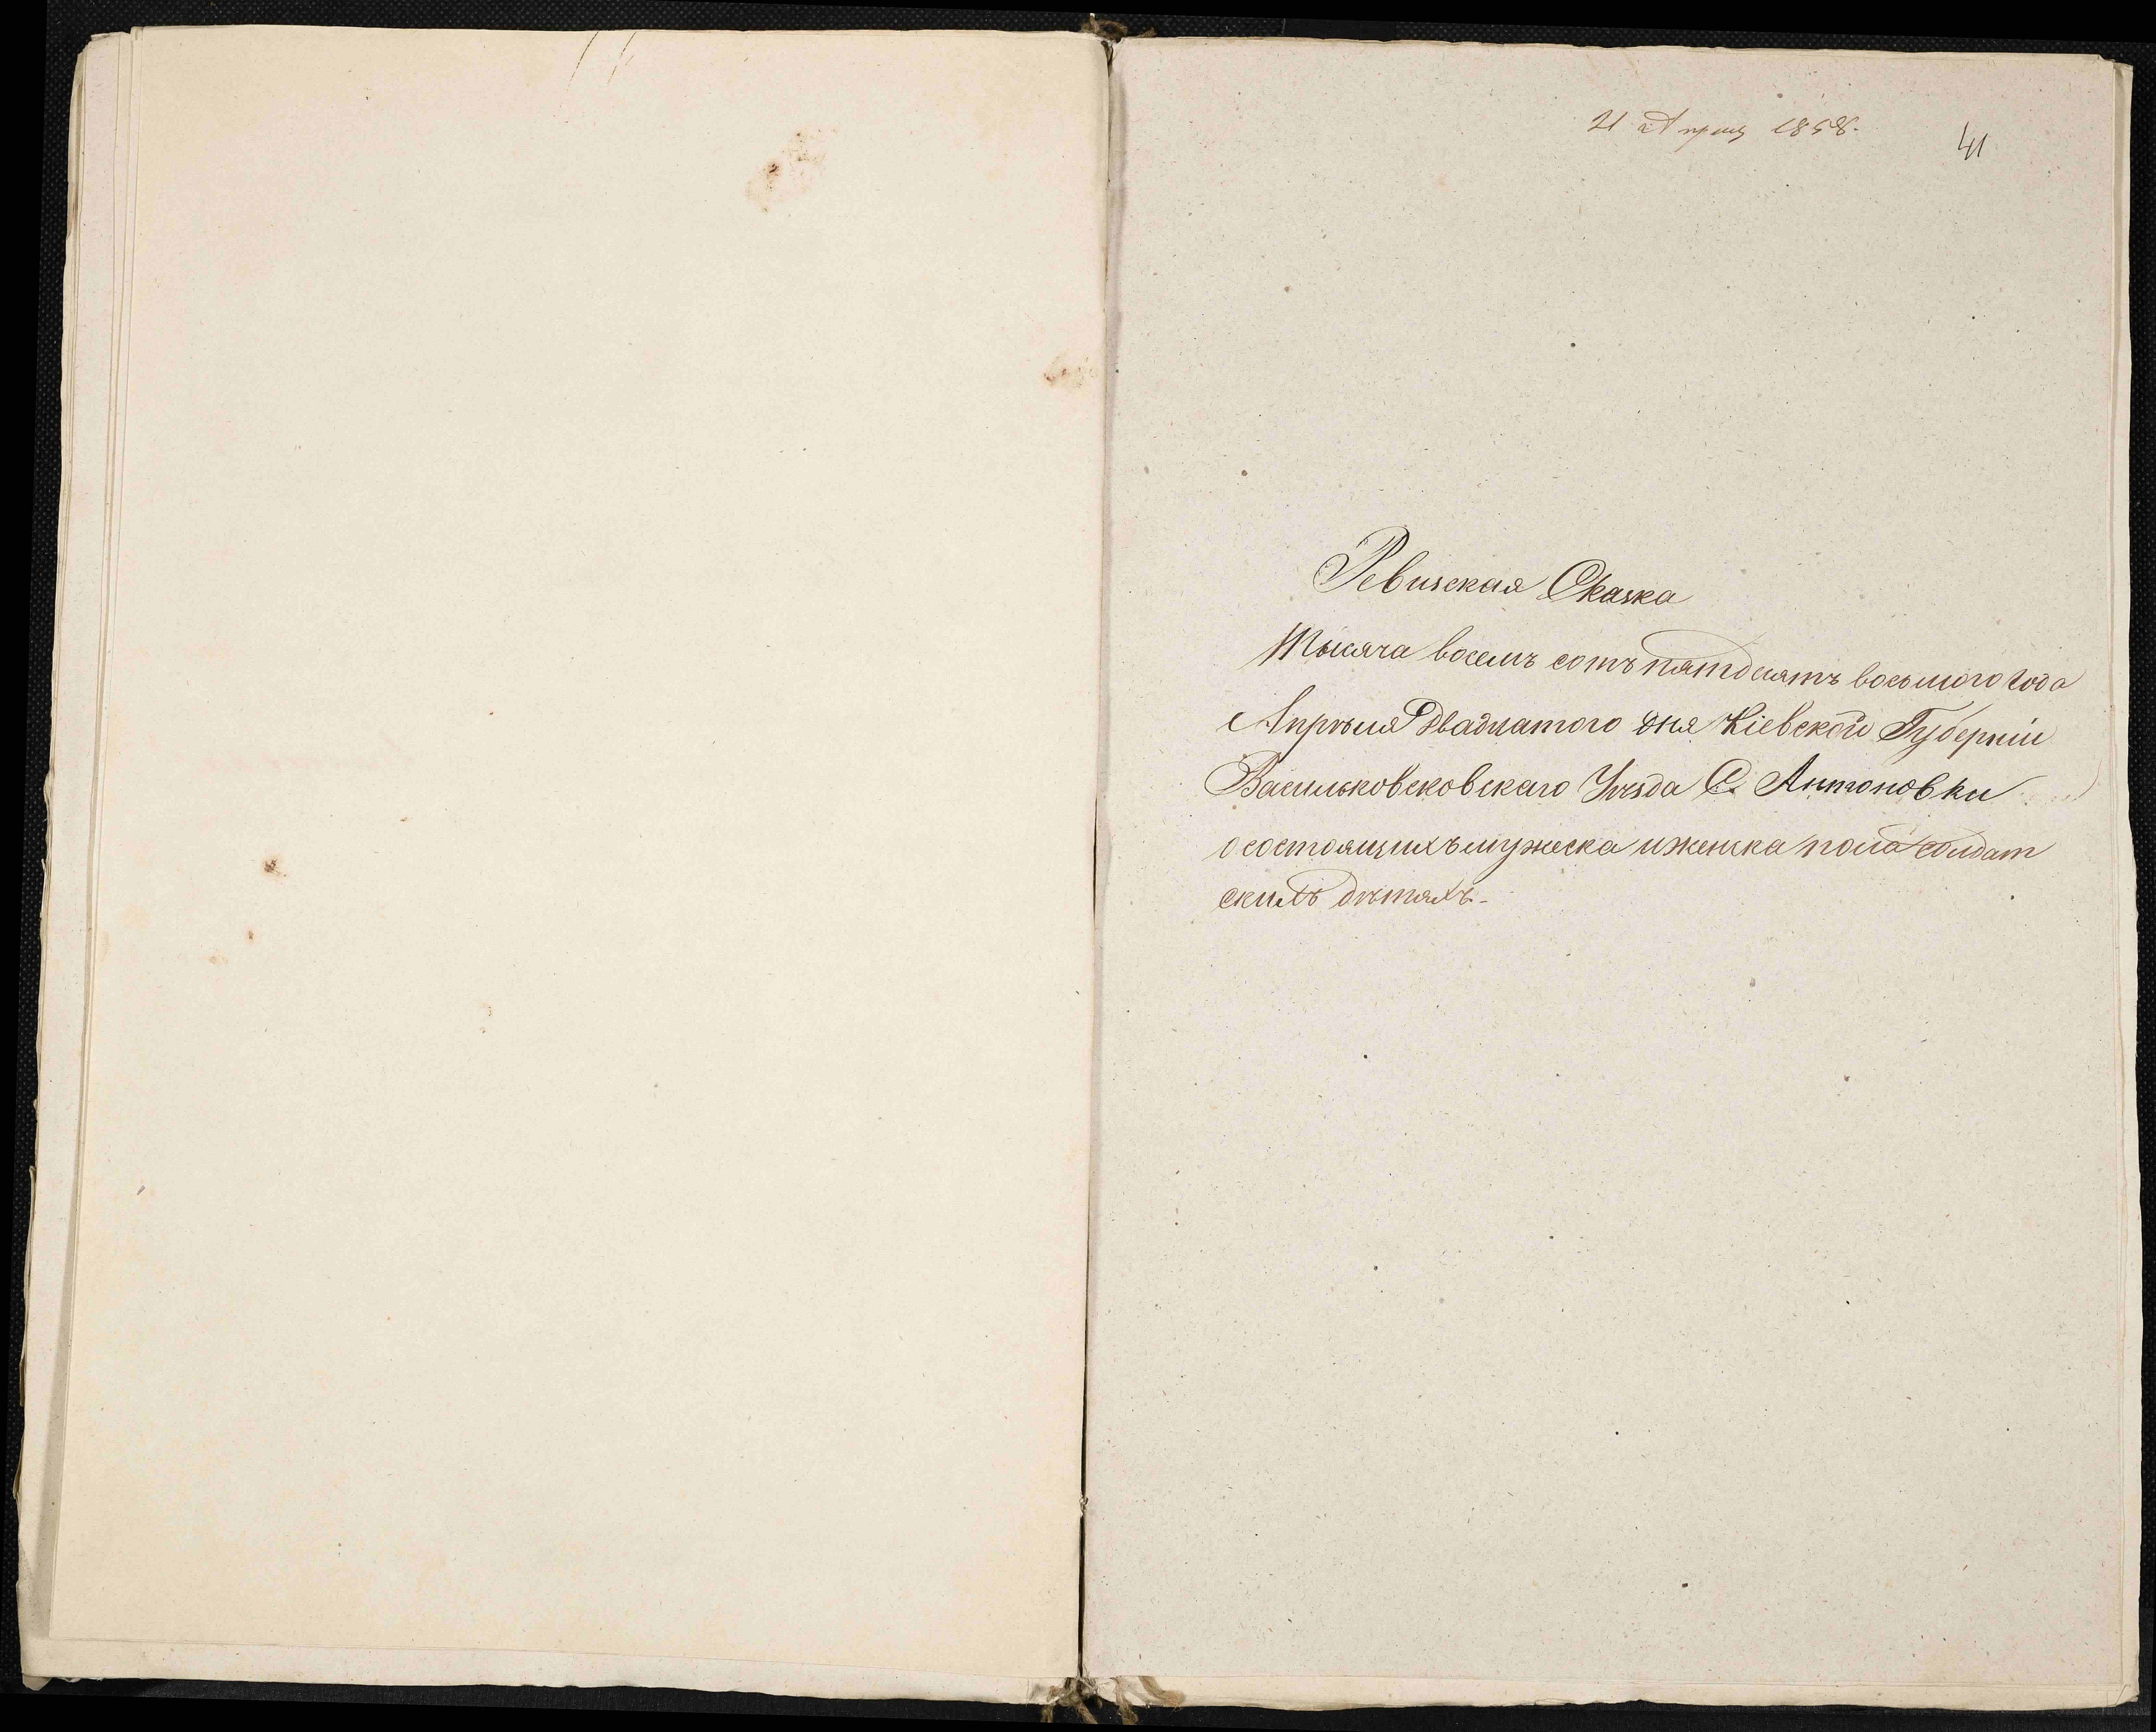 21 Апрель 1858.
41
Ревизская Сказка
Тысяча восемъ сотъ пятдесятъ восьмого года
Апрѣля двадцатого дня Кіевской Губерніи
Васильковсковскаго Уѣзда С. Антоновки
о состоящихъ мужеска и женска пола солдат
скихъ дѣтяхъ.-